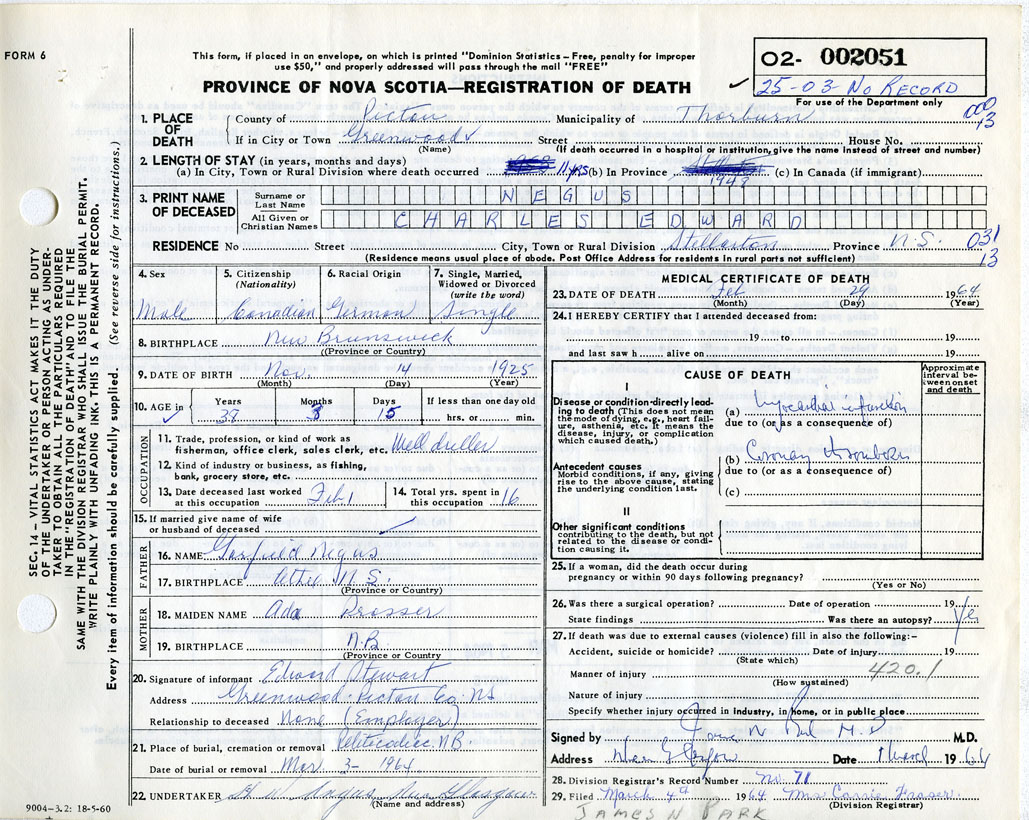 FORM 6
This form, if placed in an envelope, on which is printed "Dominion Statistics – Free, penalty for improper
use $50," and properly addressed will pass through the mail "FREE"
PROVINCE OF NOVA SCOTIA—REGISTRATION OF DEATH
02- 002051
✓ 25-03 No RECORD
For use of the Department only
1. PLACE OF DEATH
County of Pictou Municipality of Thorburn 13
If in City or Town Greenwood Street House No.
(Name) (If death occurred in a hospital or institution, give the name instead of street and number)
2. LENGTH OF STAY (in years, months and days)
(a) In City, Town or Rural Division where death occurred 11 yrs (b) In Province 1949 (c) In Canada (if immigrant)
3. PRINT NAME OF DECEASED
Surname or Last Name NEGUS
All Given or Christian Names CHARLES EDWARD
RESIDENCE No. Street City, Town or Rural Division Stellarton Province N.S. 031
13
(Residence means usual place of abode. Post Office Address for residents in rural parts not sufficient)
4. Sex Male
5. Citizenship (Nationality) Canadian
6. Racial Origin German
7. Single, Married, Widowed or Divorced (write the word) Single
8. BIRTHPLACE New Brunswick
(Province or Country)
9. DATE OF BIRTH Nov. 14 1925
(Month) (Day) (Year)
10. AGE in Years 38 Months 3 Days 15 If less than one day old hrs. or min.
OCCUPATION
11. Trade, profession, or kind of work as fisherman, office clerk, sales clerk, etc. Well driller
12. Kind of industry or business, as fishing, bank, grocery store, etc.
13. Date deceased last worked at this occupation Feb 1
14. Total yrs. spent in this occupation 16
15. If married give name of wife or husband of deceased
FATHER
16. NAME Garfield Negus
17. BIRTHPLACE N.S.
(Province or Country)
MOTHER
18. MAIDEN NAME Ada Prosser
19. BIRTHPLACE N.B.
(Province or Country)
20. Signature of informant Edward Stewart
Address Greenwood Pictou Co. N.S
Relationship to deceased None (Employer)
21. Place of burial, cremation or removal Petitcodiac N.B.
Date of burial or removal Mar 3 - 1964
22. UNDERTAKER Angus New Glasgow
(Name and address)
9004-3.2: 18-5-60
MEDICAL CERTIFICATE OF DEATH
23. DATE OF DEATH Feb 29 1964
(Month) (Day) (Year)
24. I HEREBY CERTIFY that I attended deceased from:
19 to 19
and last saw h alive on 19
CAUSE OF DEATH
Approximate interval between onset and death
I
Disease or condition directly leading to death (This does not mean the mode of dying, e.g., heart failure, asthenia, etc. It means the disease, injury, or complication which caused death.)
(a) Myocardial infarction
due to (or as a consequence of)
Antecedent causes
Morbid conditions, if any, giving rise to the above cause, stating the underlying condition last.
(b) Coronary thrombosis
due to (or as a consequence of)
(c)
II
Other significant conditions contributing to the death, but not related to the disease or condition causing it.
25. If a woman, did the death occur during pregnancy or within 90 days following pregnancy?
(Yes or No)
26. Was there a surgical operation? Date of operation 19
State findings Was there an autopsy? Yes
27. If death was due to external causes (violence) fill in also the following:–
Accident, suicide or homicide? Date of injury 19
(State which)
Manner of injury 420.1
(How sustained)
Nature of injury
Specify whether injury occurred in industry, in home, or in public place
Signed by M.D.
Address New Glasgow Date March 1964
28. Division Registrar's Record Number No. 71
29. Filed March 4th 1964 Mrs Carrie Fraser
(Division Registrar)
JAMES N PARK
SEC. 14 – VITAL STATISTICS ACT MAKES IT THE DUTY
OF THE UNDERTAKER OR PERSON ACTING AS UNDER-
TAKER TO OBTAIN ALL THE PARTICULARS REQUIRED
IN THE "REGISTRATION OF DEATH" AND TO FILE THE
SAME WITH THE DIVISION REGISTRAR WHO SHALL ISSUE THE BURIAL PERMIT.
WRITE PLAINLY WITH UNFADING INK. THIS IS A PERMANENT RECORD.
Every item of information should be carefully supplied. (See reverse side for instructions.)